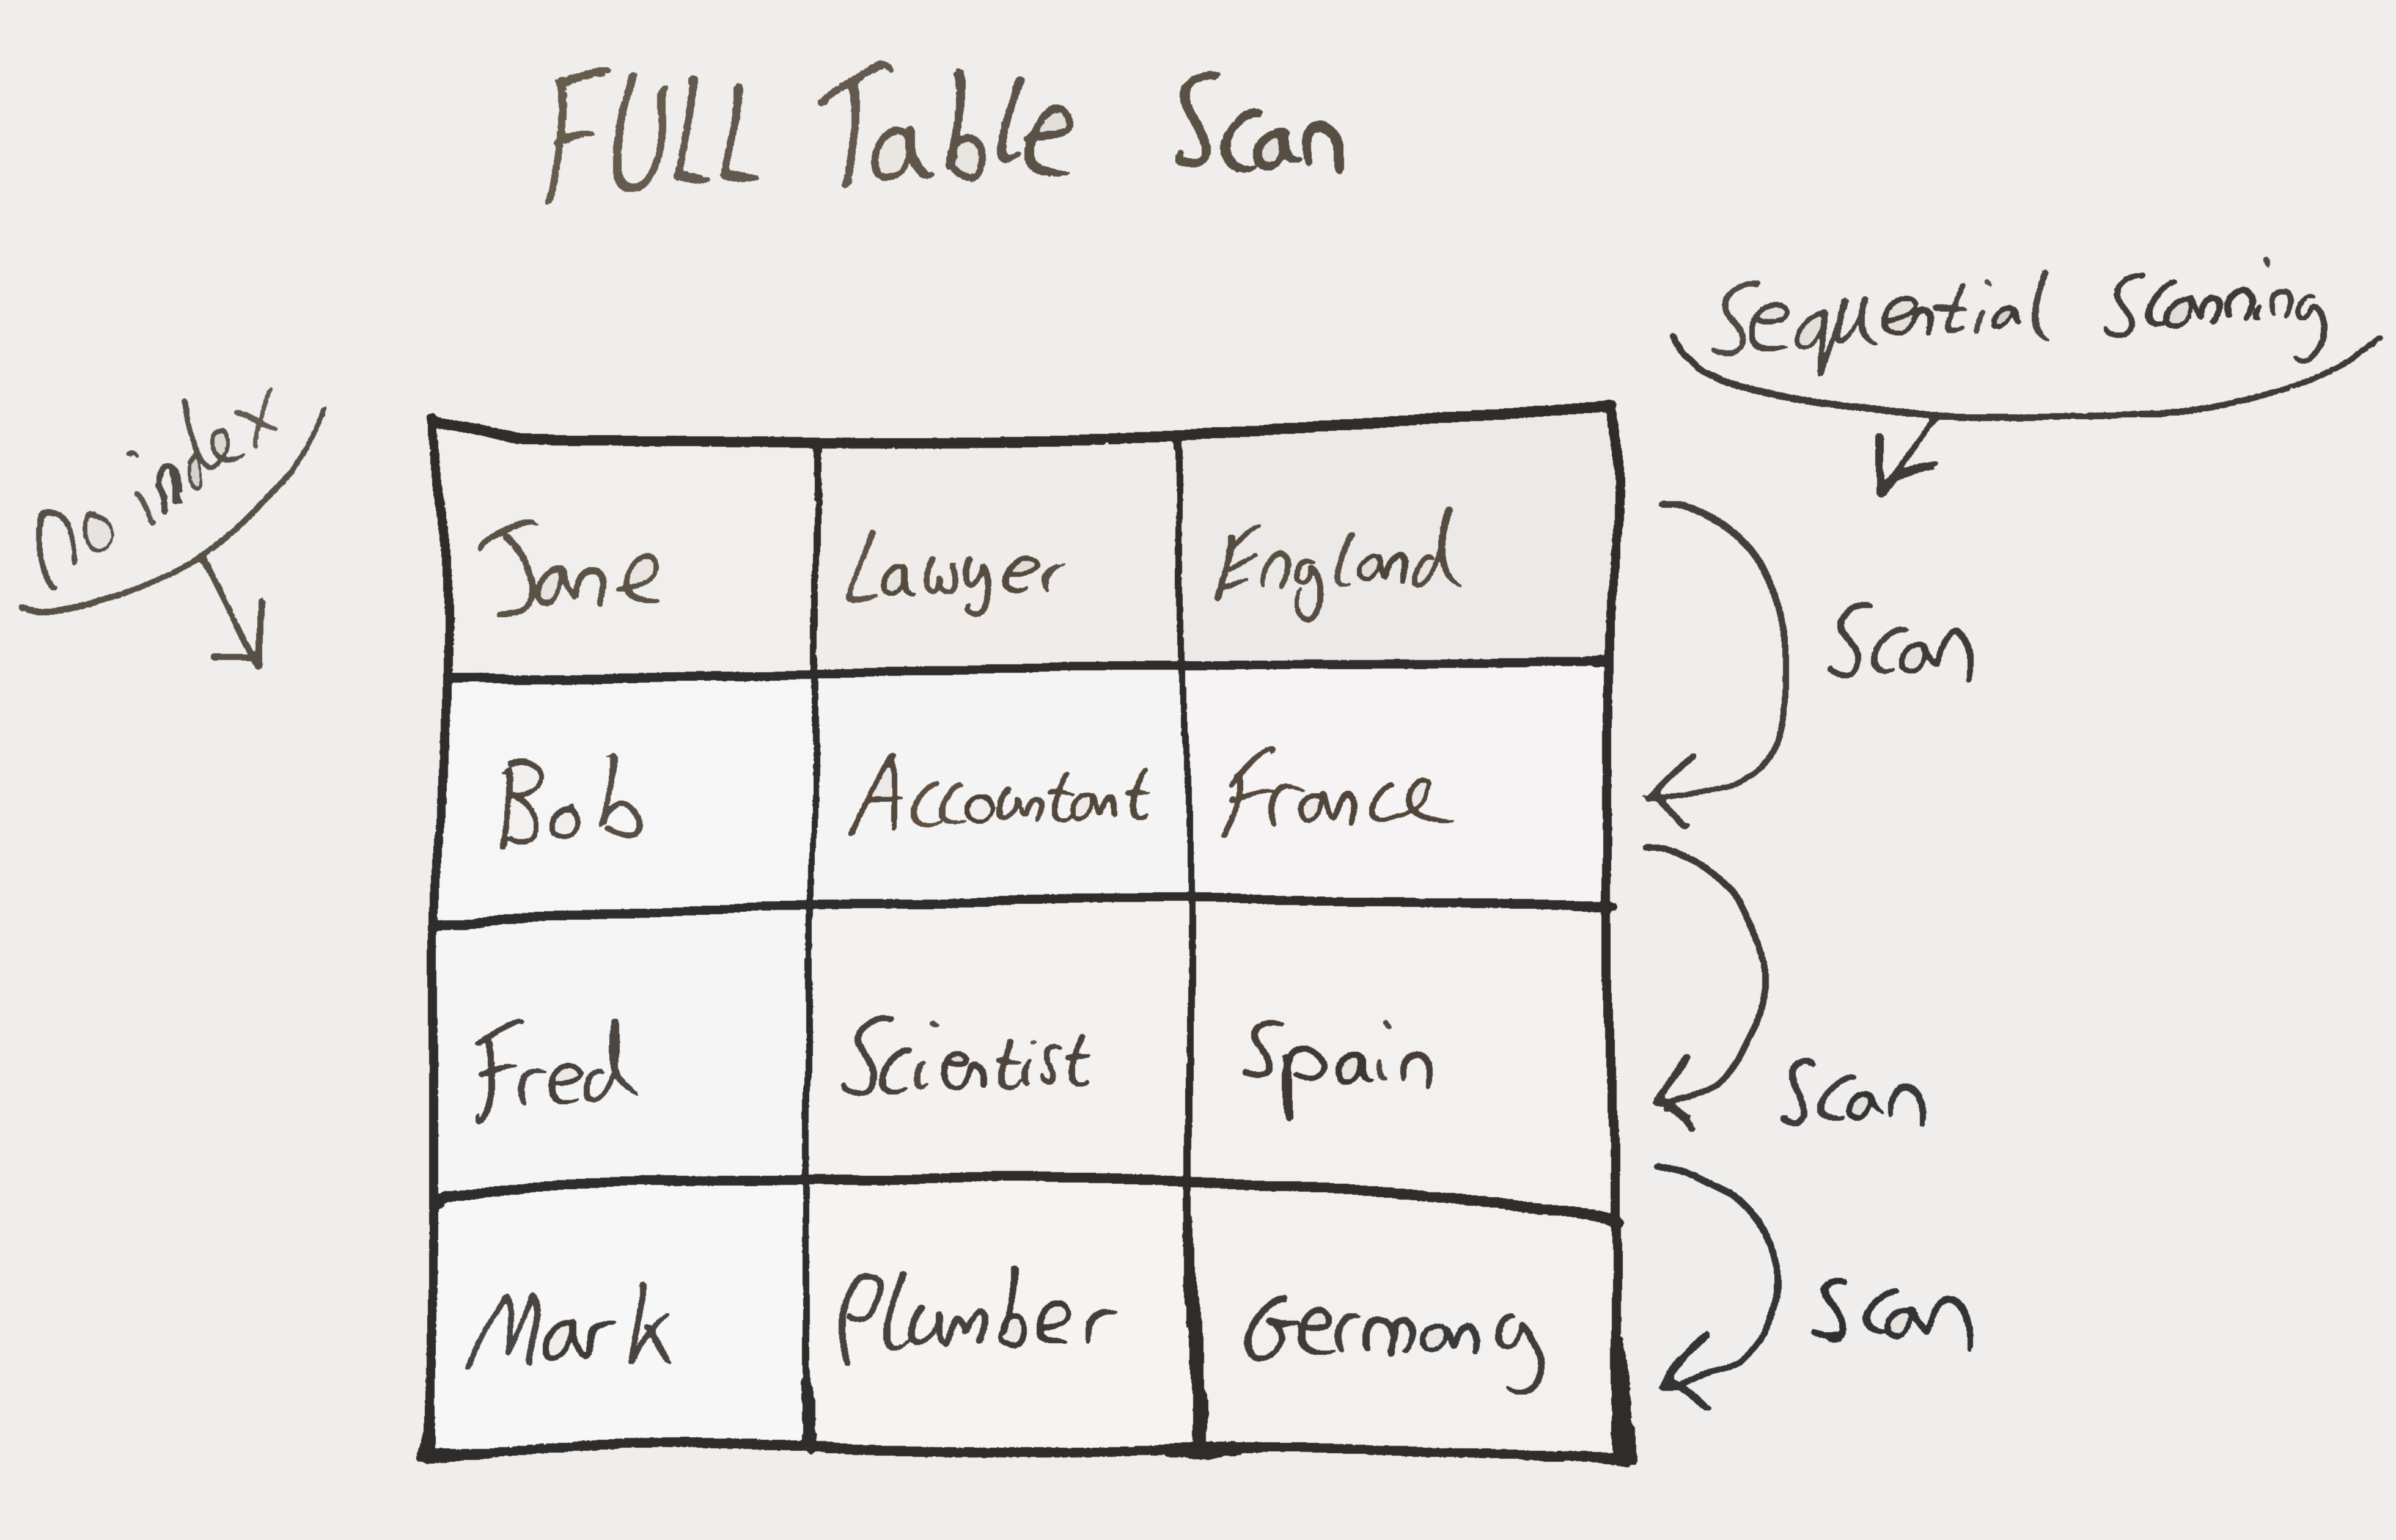 FULL Table Scan
Sequential Scanning
no index
Jane Lawyer England
Scan
Bob Accountant France
Fred Scientist Spain
Scan
Mark Plumber Germany
Scan